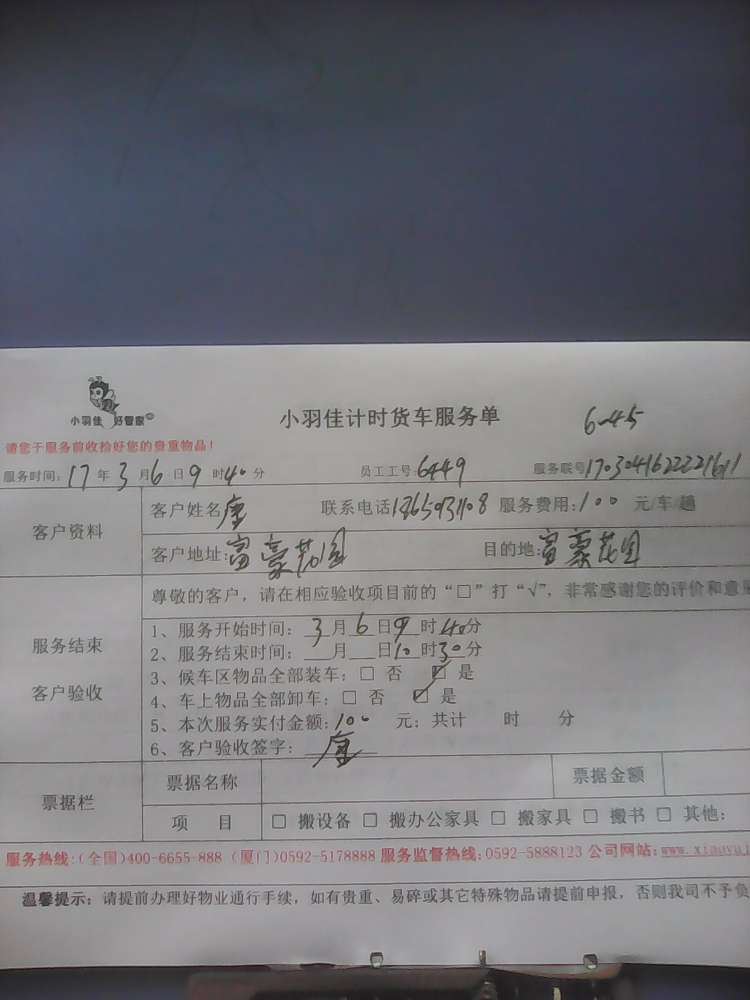 小羽佳 好管家
小羽佳计时货车服务单
6-45
请您于服务前收拾好您的贵重物品！
服务时间：17年3月6日9时40分 员工工号：6449 服务联号1703041622221611
客户资料
客户姓名：唐 联系电话 服务费用：100元/车/趟
客户地址：富豪花园 目的地：富豪花园
服务结束
客户验收
尊敬的客户，请在相应验收项目前的“□”打“√”，非常感谢您的评价和意
1、服务开始时间：3月6日9时40分
2、服务结束时间：__月__日10时30分
3、候车区物品全部装车：□ 否 ☑ 是
4、车上物品全部卸车：□ 否 ☑ 是
5、本次服务实付金额：100元；共计 时 分
6、客户验收签字：唐
票据栏
票据名称 票据金额
项 目 □ 搬设备 □ 搬办公家具 □ 搬家具 □ 搬书 □ 其他：
服务热线：(全国)400-6655-888 (厦门)0592-5178888 服务监督热线：0592-5888123 公司网站：www.xiaoyuj
温馨提示：请提前办理好物业通行手续，如有贵重、易碎或其它特殊物品请提前申报，否则我司不予负